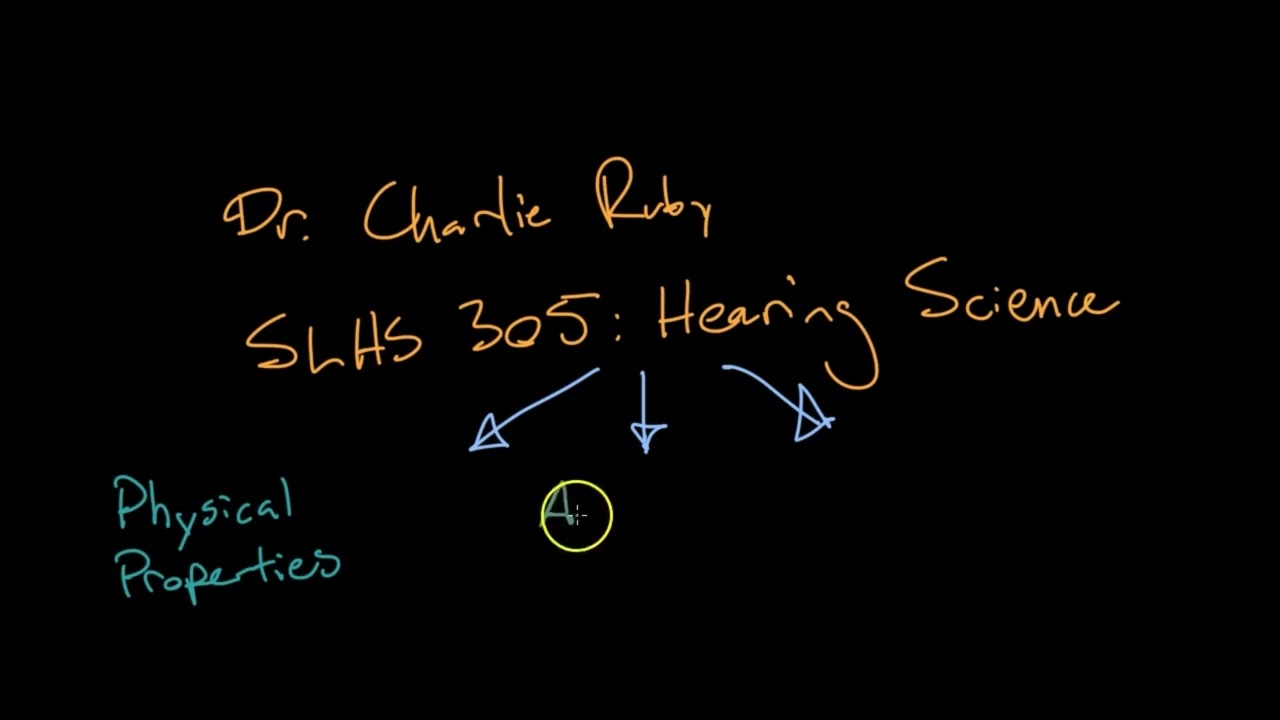 Dr. Charlie Ruby
SLHS 305: Hearing Science
Physical
Properties
A